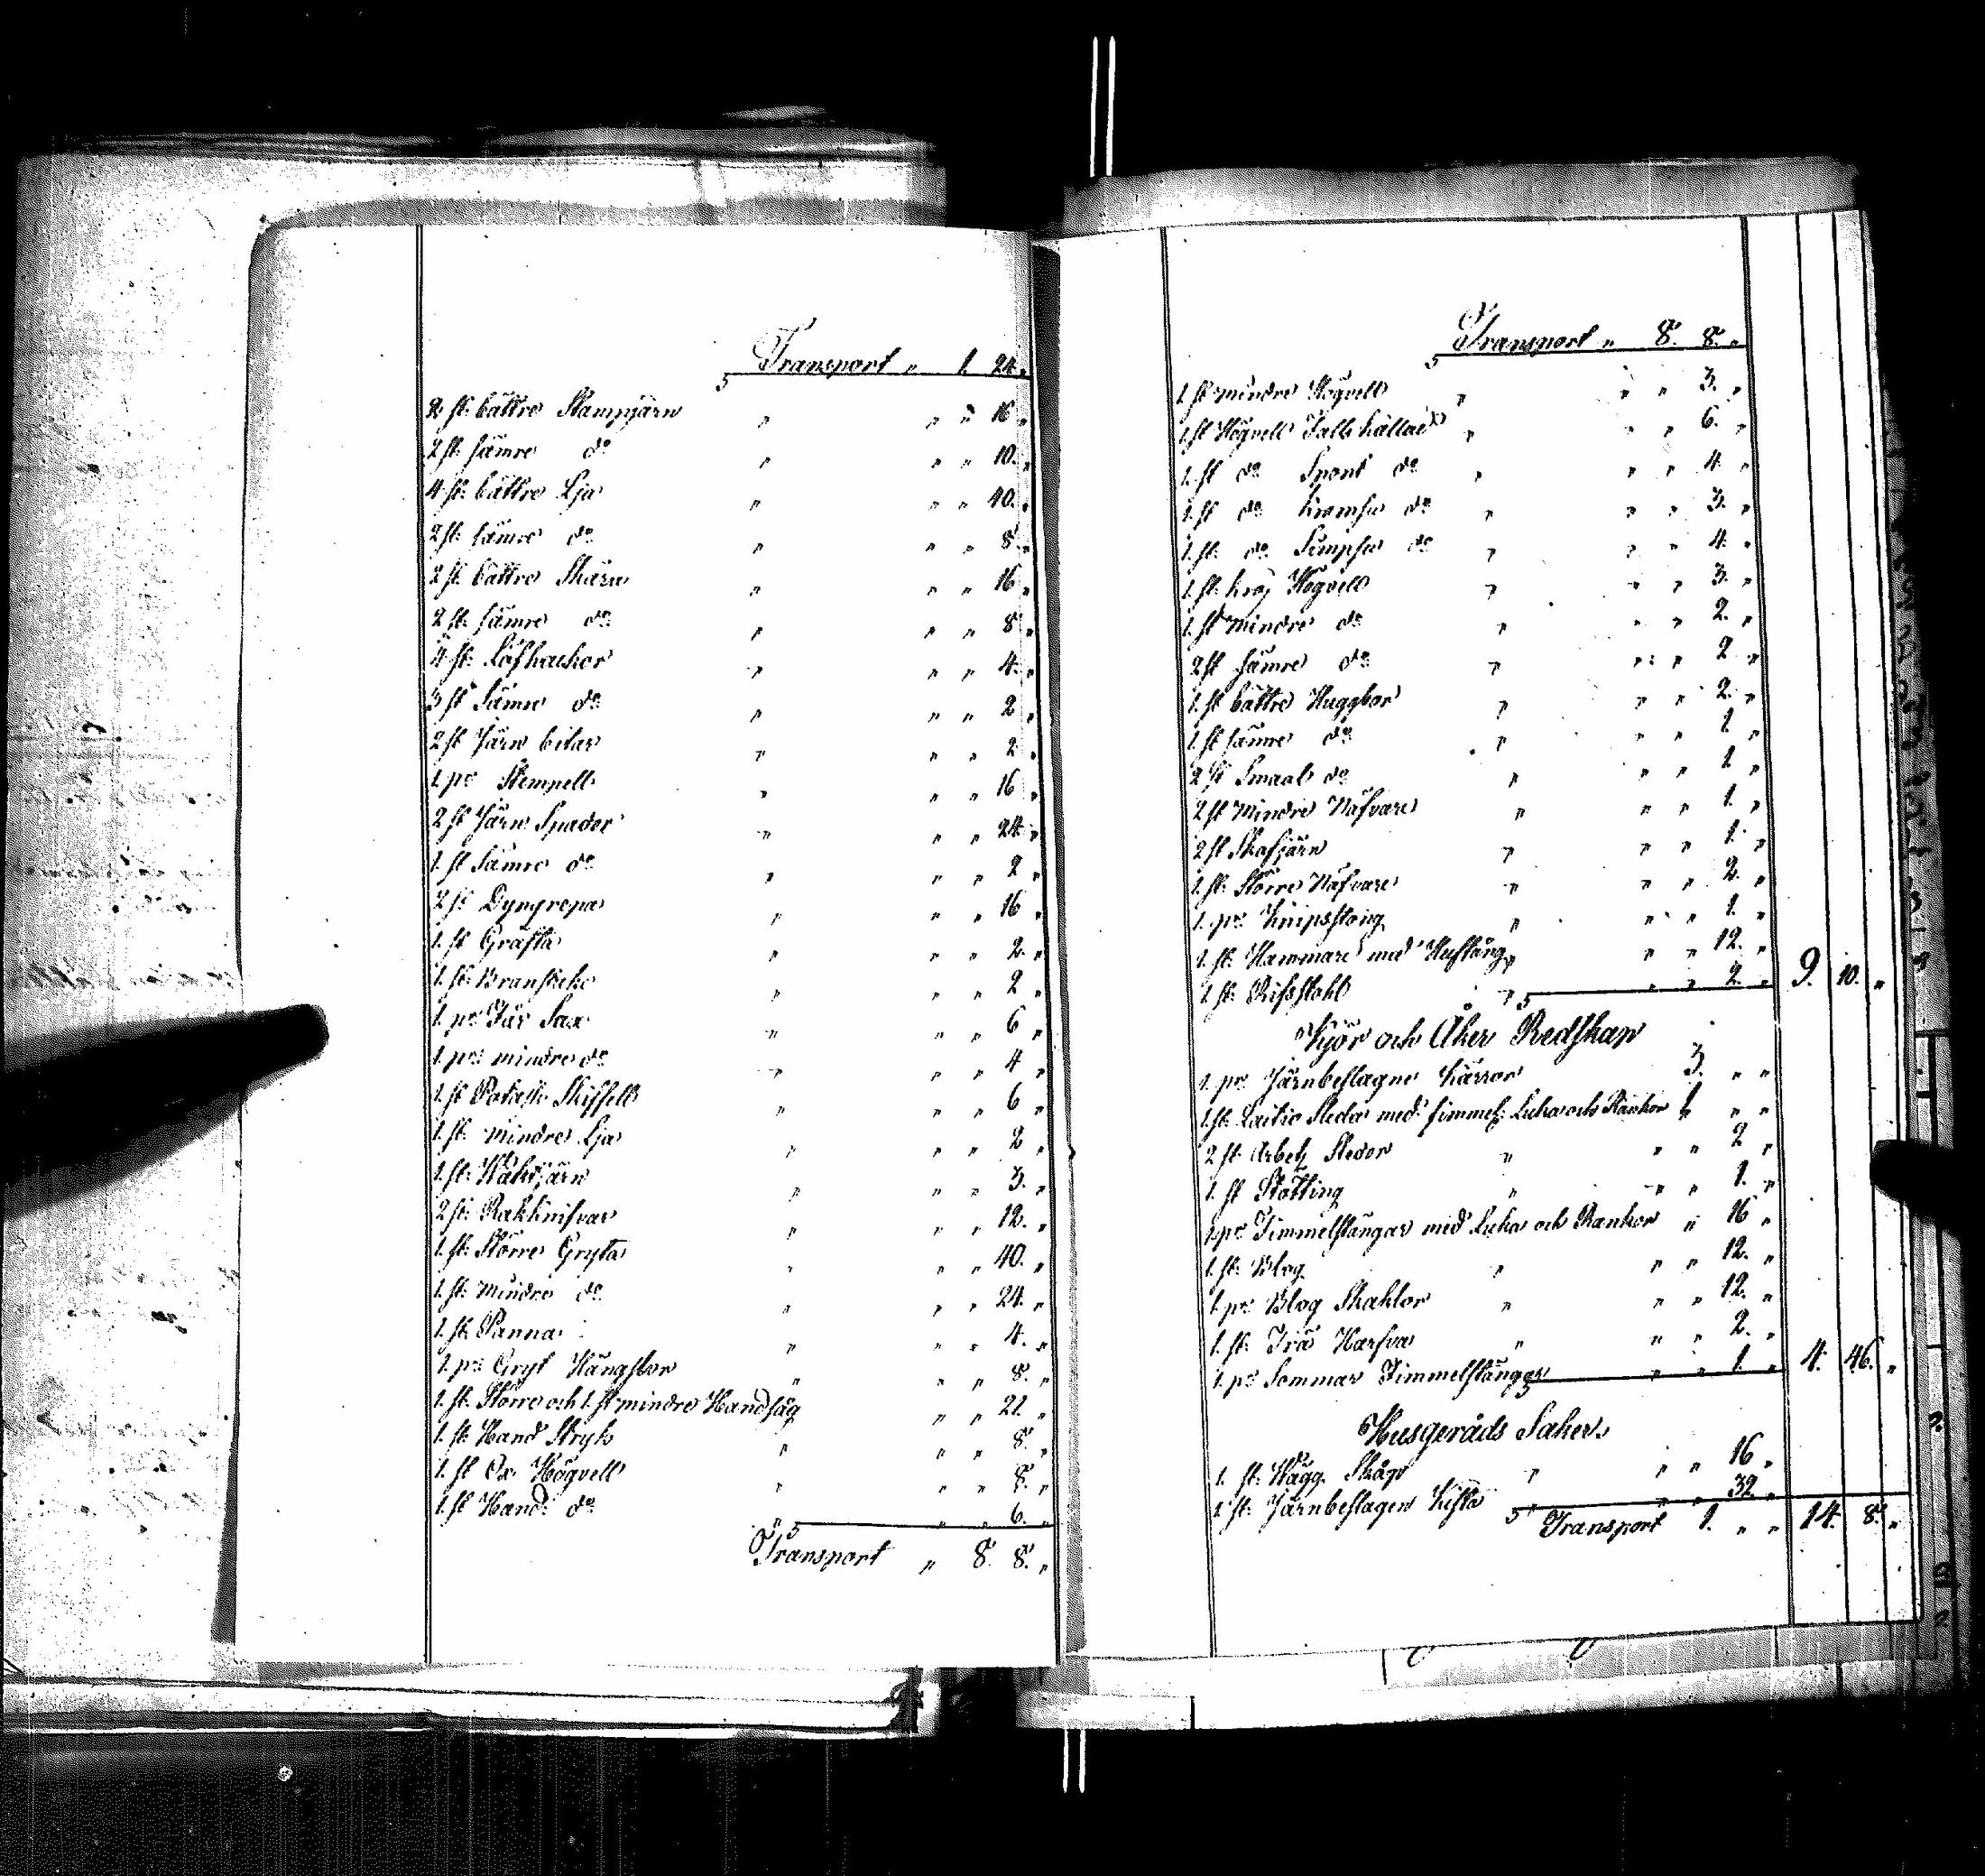 Transport " 1. 24. "
2 st: bättre Stampjärn " " " 16 "
2 st: sämre do " " " 10. "
4 st: bättre Lja " " " 40. "
2 st: sämre do " " " 8. "
2 st bättre Skära " " " 16 "
2 st: sämre do " " " 8. "
4 st: Löfhackor " " " 4. "
3 st Sämre do " " " 2 "
2 st Järn bilar " " " 2 "
1. pr Stempell " " " 16 "
2 st Järn Spador " " " 24. "
1. st Sämre do " " " 2 "
2 st Dyngrepa " " " 16 "
1. st Gräfta " " " 2. "
1. st: " " " 2 "
1. pr Får Sax " " " 6 "
1. pr: mindre do " " " 4 "
1. st Skiffell " " " 6 "
1. st: mindre Lja " " " 2 "
1. st: " " " 3. "
2 st: Rakknifvar " " " 12. "
1. st: Större Gryta " " " 40. "
1. st: mindre do " " " 24. "
1. st: Panna " " " 4. "
1. pr: Gryt Hängslor " " " 8. "
1. st: Större och 1. st mindre Handsåg " " 22. "
1. st: Hand Stryk " " " 8. "
1. st Ox Högvell " " " 8. "
1. st Hand do " " " 6. "
Transport " 8. 8. "
Transport " 8. 8. "
1. st mindre Högvell " " " 3. "
1. st Högvell Falls kallad " " " 6. "
1. st do Spont do " " " 4 "
1. st do do " " " 3. "
1. st: do do " " " 4. "
1. st: Högvell " " " 3. "
1. st mindre do " " " 2. "
2 st sämre do " " " 2 "
1. st bättre Huggbor " " " 2. "
1. st sämre do " " " 1 "
2 st Smaal do " " " 1 "
2 st Mindre Näfvare " " " 1. "
2 st Skafjärn " " " 1. "
1. st: Större Näfvare " " " 2. "
1. pr Knipstång " " " 1. "
1. st: Hammare med Hoftång " " " 12. "
1. st: Risstahl " " " 2. " 9. 10. "
Kjör och Åker Redskap
1. pr Järnbeslagne Kärror 3. " "
1. st: Släda med fimmel: Luka och Rankor 1 " "
2 st: Arbetz Slädor " " " 2 "
1. st Stötting " " " 1. "
1. pr Fimmelstänger med Luka och Rankor " 16 "
1. st: Plog " " " 12. "
1. pr Plog Skaklor " " " 12. "
1. st: Trä Harfva " " " 2. "
1. pr Sommar Fimmelstänger " " 1. " 4. 46. "
Husgeråds Saker
1. st: Wägg Skåp " " " 16 "
1 st: Järnbeslagen Kista " " 32. "
Transport 1. " " 14. 8. "